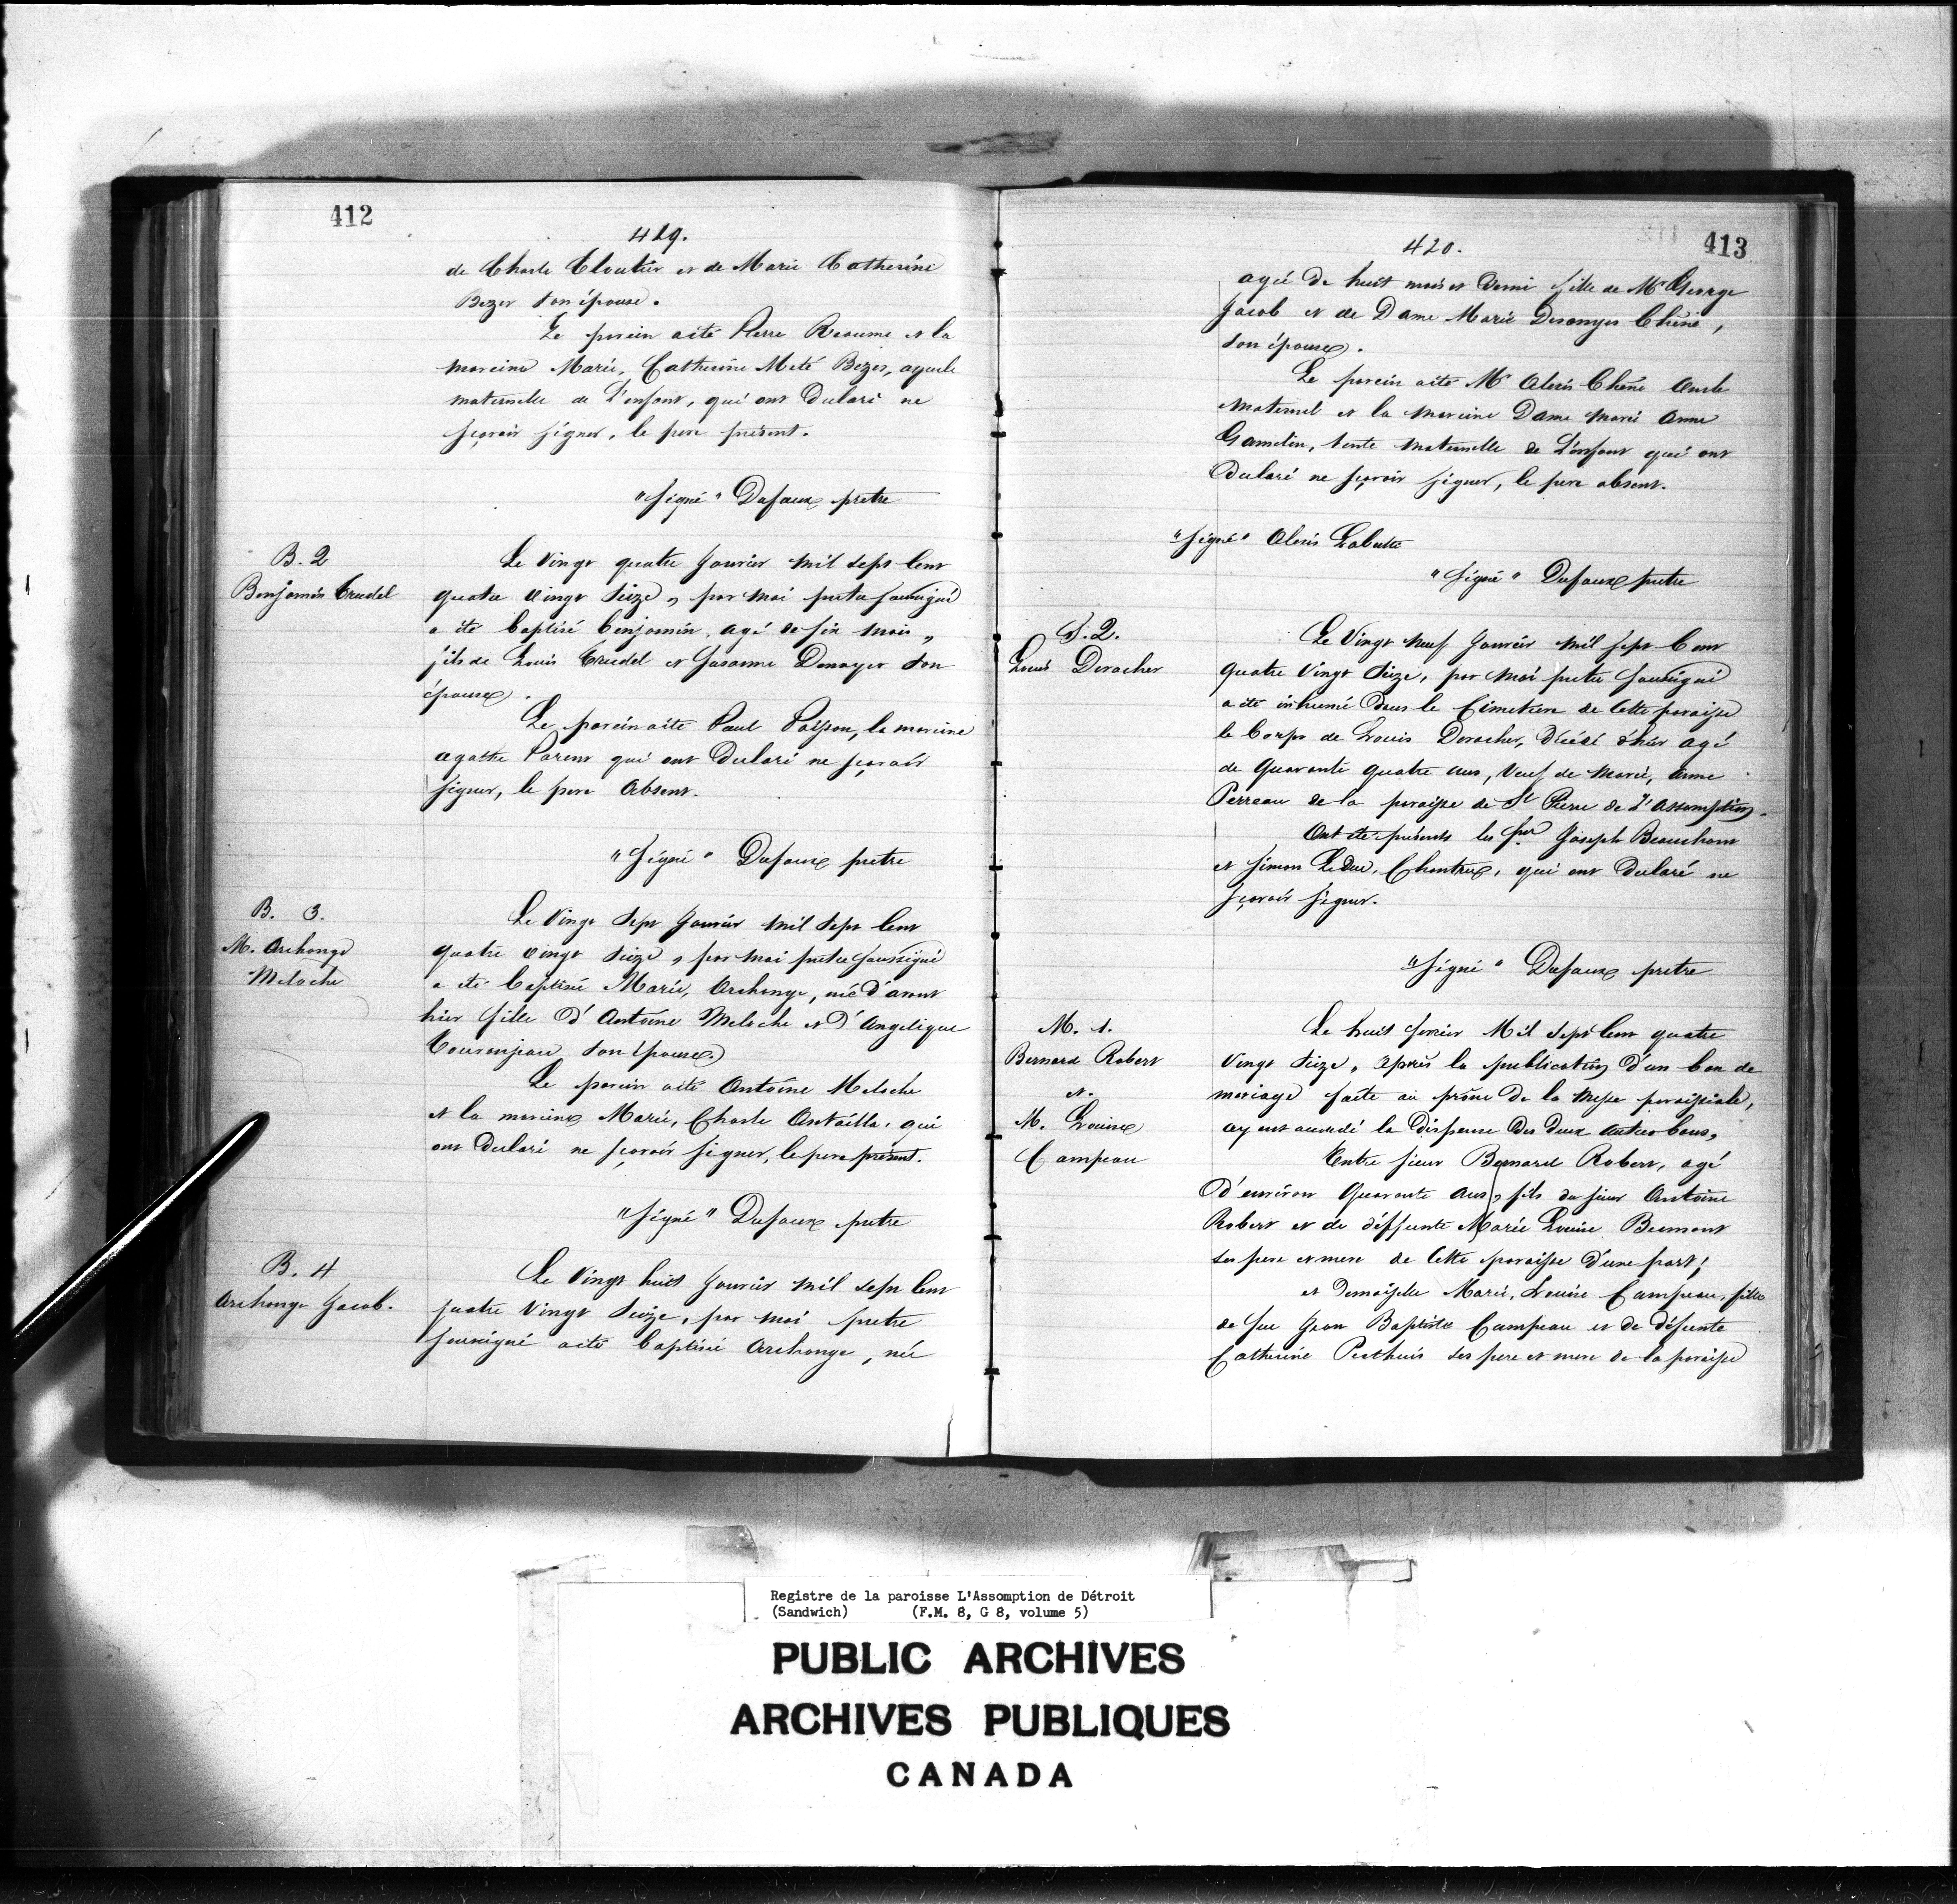 412
419.
de Charle Cloutier et de Marie Catherine
Bezer son épouse.
Le parein a été Pierre Reaume et la
mareine Marie, Catherine Meté Bezer, ayeule
maternelle de L'enfant, qui ont Declaré ne
sçavoir signer, le pere présent.
"Signé" Dufaux pretre
B. 2
Benjamin Cruedel
Le Vingt quatre Janvier mil sept Cent
quatre vingt Seize, par moi pretre soussigné
a été baptisé benjamin, agé de six mois,
fils de Louis Cruedel et Susanne Denoyer son
épouse.
Le parein a été Paul Poisson, la mareine
agathe Parent qui ont Declaré ne sçavoir
signer, le pere Absent.
"Signé" Dufaux pretre
B. 3.
M. Archange
Meloche
Le Vingt Sept Janvier mil Sept Cent
quatre vingt Seize, par moi pretre soussigné
a été baptisé Marie, Archange, née d'avant
hier fille d'Antoine Meloche et d'Angelique
Couronjeau son épouse.
Le parein a été Antoine Meloche
et la mareine Marie, Charle Antailla, qui
ont Declaré ne sçavoir signer, le pere présent.
"Signé" Dufaux pretre
B. 4
Archange Jacob.
Le Vingt huit Janvier mil sept Cent
quatre Vingt Seize, par moi pretre
soussigné a été baptisé Archange, née
413
420.
agée de huit mois et Demi fille de Mr George
Jacob et de Dame Marie Desanges Chêne,
son épouse.
Le parein a été Mr Alexis Chêne oncle
Maternel et la Mareine Dame Marie Anne
Gamelin, tente Maternelle de L'enfant qui ont
Declaré ne sçavoir signer, le pere absent.
"Signé" Alexis Labutte
"Signé" Dufaux pretre
S. 2.
Louis Deracher
Le Vingt neuf Janvier mil sept Cent
quatre Vingt Seize, par moi pretre soussigné
a été inhumé dans le Cimetiere de Cette paroisse
le Corps de Louis Deracher, décédé d'hier agé
de Quarante quatre ans, Veuf de Marie, Anne
Perreau de la paroisse de St Pierre de L'Assomption.
Ont été présents les Srs Joseph Beauchamp
et Simon Leduc, Chantres, qui ont Declaré ne
sçavoir signer.
"Signé" Dufaux pretre
M. 1.
Bernard Robert
et.
M. Louise
Campeau
Le huit fevrier Mil Sept Cent quatre
Vingt Seize, après la publication d'un ban de
mariage faite au prône De la Messe paroissiale,
ayant accordé la Dispense Des Deux autres bans,
Entre sieur Bernard Robert, agé
d'environ Quarante ans, fils du sieur Antoine
Robert et de déffunte Marie Louise Beumont
ses pere et mere de Cette paroisse d'une part;
et Demoiselle Marie, Louise Campeau, fille
de feu Jean Baptiste Campeau et de défunte
Catherine Perthuis ses pere et mere de la paroisse
Registre de la paroisse L'Assomption de Détroit
(Sandwich) (F.M. 8, G 8, volume 5)
PUBLIC ARCHIVES
ARCHIVES PUBLIQUES
CANADA